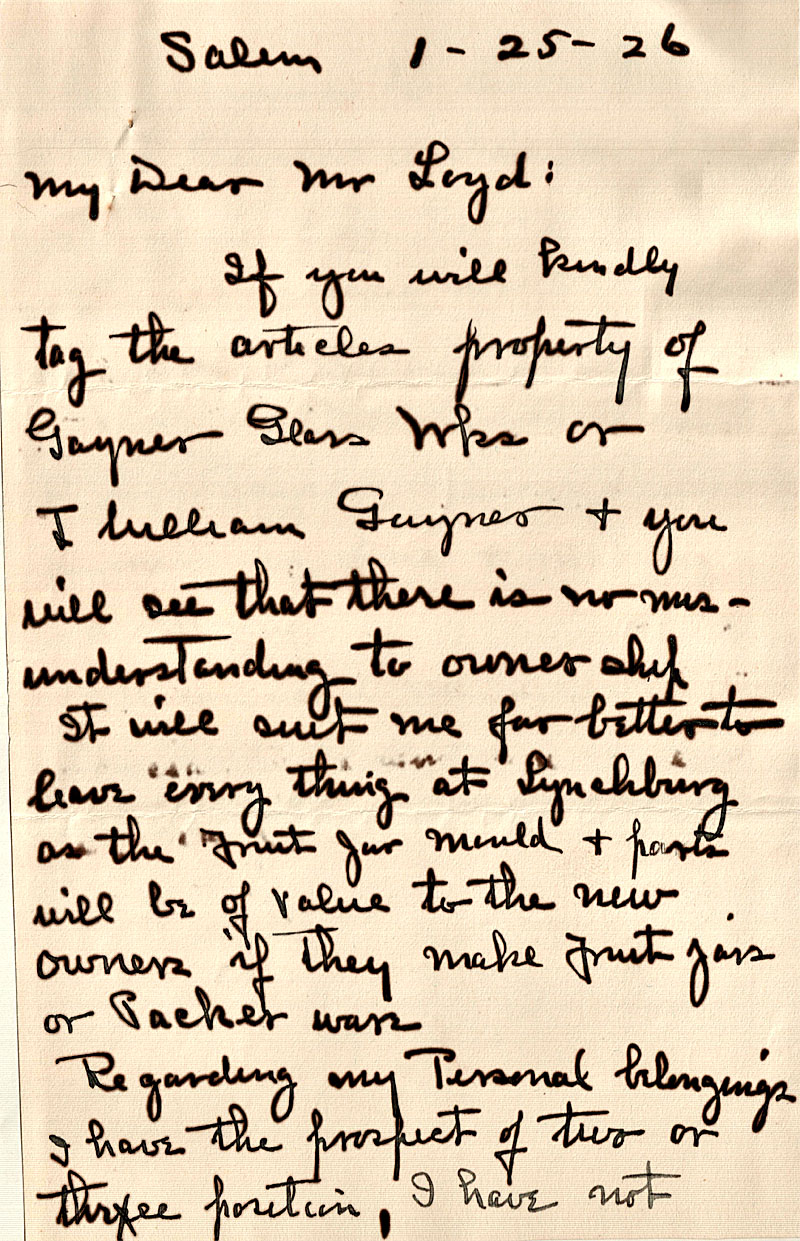 Salem 1-25-26
My Dear Mr Loyd:
If you will kindly
tag the articles property of
Gayner Glass Wks or
J William Gayner + you
will see that there is no mis-
understanding to ownership
It will suit me far better to
leave every thing at Lynchburg
as the Fruit Jar mould + parts
will be of value to the new
owners if they make Fruit jars
or Packer ware
Regarding my Personal belongings
I have the prospect of two or
three position, I have not